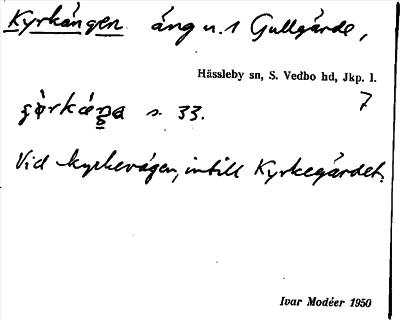 Kyrkängen äng u.1 Gullgärde,
Hässleby sn, S. Vedbo hd, Jkp. l.
7
s. 33.
Vid kyrkevägen, intill Kyrkegärdet.
Ivar Modéer 1950